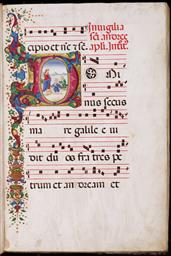 In uigilia
sci andree
capio et nc̄ ⁊ se. apli. Introit.
Omi
nus secus
ma re galilee ui
dit du os fratres pe
trum et andream et